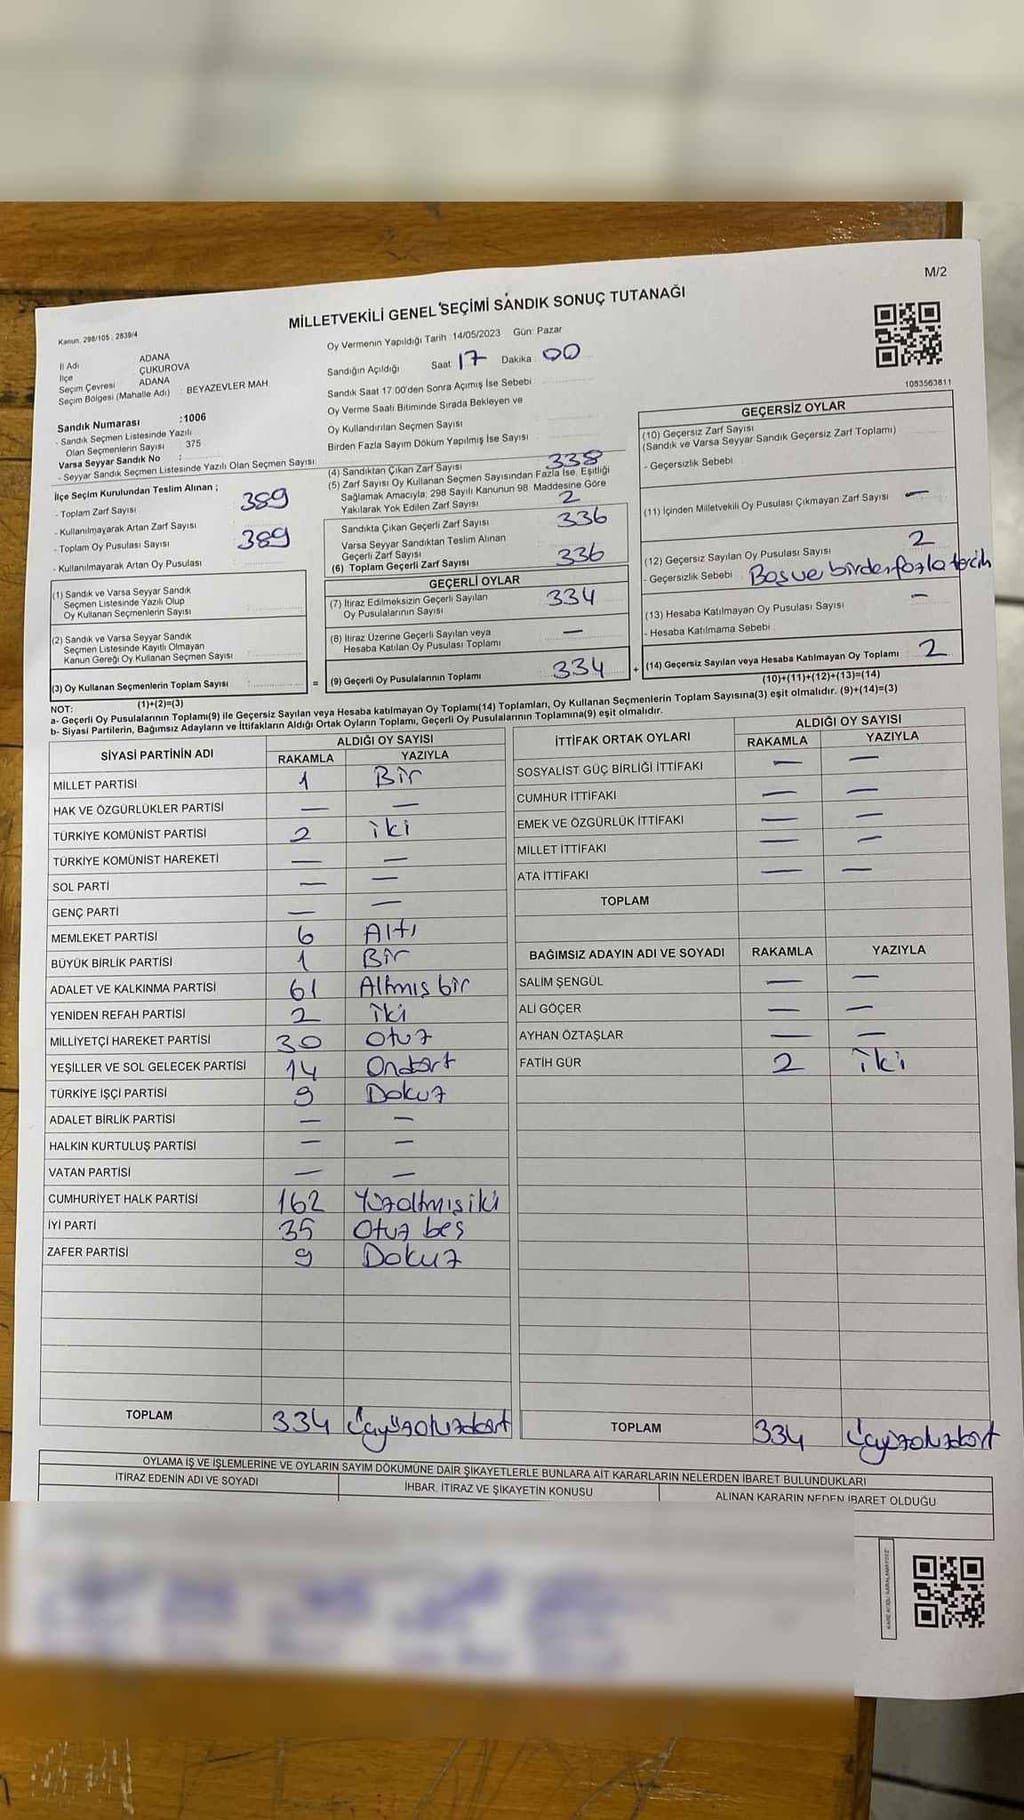 M/2
MİLLETVEKİLİ GENEL SEÇİMİ SANDIK SONUÇ TUTANAĞI
Kanun, 298/105 , 2839/4
İl Adı ADANA
İlçe ÇUKUROVA
Seçim Çevresi ADANA
Seçim Bölgesi (Mahalle Adı) : BEYAZEVLER MAH
Sandık Numarası :1006
- Sandık Seçmen Listesinde Yazılı
Olan Seçmenlerin Sayısı 375
Varsa Seyyar Sandık No :
- Seyyar Sandık Seçmen Listesinde Yazılı Olan Seçmen Sayısı:
İlçe Seçim Kurulundan Teslim Alınan ;
- Toplam Zarf Sayısı 389
- Kullanılmayarak Artan Zarf Sayısı
- Toplam Oy Pusulası Sayısı 389
- Kullanılmayarak Artan Oy Pusulası
(1) Sandık ve Varsa Seyyar Sandık
Seçmen Listesinde Yazılı Olup
Oy Kullanan Seçmenlerin Sayısı
(2) Sandık ve Varsa Seyyar Sandık
Seçmen Listesinde Kayıtlı Olmayan
Kanun Gereği Oy Kullanan Seçmen Sayısı
(3) Oy Kullanan Seçmenlerin Toplam Sayısı
(1)+(2)=(3)
Oy Vermenin Yapıldığı Tarih :14/05/2023 Gün: Pazar
Sandığın Açıldığı Saat 17 Dakika 00
Sandık Saat 17.00'den Sonra Açımış İse Sebebi
Oy Verme Saati Bitiminde Sırada Bekleyen ve
Oy Kullandırılan Seçmen Sayısı
Birden Fazla Sayım Döküm Yapılmış İse Sayısı
(4) Sandıktan Çıkan Zarf Sayısı 338
(5) Zarf Sayısı Oy Kullanan Seçmen Sayısından Fazla İse, Eşitliği
Sağlamak Amacıyla, 298 Sayılı Kanunun 98. Maddesine Göre
Yakılarak Yok Edilen Zarf Sayısı 2
Sandıkta Çıkan Geçerli Zarf Sayısı 336
Varsa Seyyar Sandıktan Teslim Alınan
Geçerli Zarf Sayısı
(6) Toplam Geçerli Zarf Sayısı 336
GEÇERLİ OYLAR
(7) İtiraz Edilmeksizin Geçerli Sayılan
Oy Pusulalarının Sayısı 334
(8) İtiraz Üzerine Geçerli Sayılan veya
Hesaba Katılan Oy Pusulası Toplamı —
= (9) Geçerli Oy Pusulalarının Toplamı 334 +
1083563811
GEÇERSİZ OYLAR
(10) Geçersiz Zarf Sayısı
(Sandık ve Varsa Seyyar Sandık Geçersiz Zarf Toplamı)
- Geçersizlik Sebebi
(11) İçinden Milletvekili Oy Pusulası Çıkmayan Zarf Sayısı —
(12) Geçersiz Sayılan Oy Pusulası Sayısı 2
- Geçersizlik Sebebi Boş ve birden fazla tercih
(13) Hesaba Katılmayan Oy Pusulası Sayısı —
- Hesaba Katılmama Sebebi
(14) Geçersiz Sayılan veya Hesaba Katılmayan Oy Toplamı 2
(10)+(11)+(12)+(13)=(14)
NOT:
a- Geçerli Oy Pusulalarının Toplamı(9) ile Geçersiz Sayılan veya Hesaba katılmayan Oy Toplamı(14) Toplamları, Oy Kullanan Seçmenlerin Toplam Sayısına(3) eşit olmalıdır. (9)+(14)=(3)
b- Siyasi Partilerin, Bağımsız Adayların ve İttifakların Aldığı Ortak Oyların Toplamı, Geçerli Oy Pusulalarının Toplamına(9) eşit olmalıdır.
SİYASİ PARTİNİN ADI ALDIĞI OY SAYISI
RAKAMLA YAZIYLA
MİLLET PARTİSİ 1 Bir
HAK VE ÖZGÜRLÜKLER PARTİSİ — —
TÜRKİYE KOMÜNİST PARTİSİ 2 iki
TÜRKİYE KOMÜNİST HAREKETİ — —
SOL PARTİ — —
GENÇ PARTİ — —
MEMLEKET PARTİSİ 6 Altı
BÜYÜK BİRLİK PARTİSİ 1 Bir
ADALET VE KALKINMA PARTİSİ 61 Altmış bir
YENİDEN REFAH PARTİSİ 2 iki
MİLLİYETÇİ HAREKET PARTİSİ 30 Otuz
YEŞİLLER VE SOL GELECEK PARTİSİ 14 Ondört
TÜRKİYE İŞÇİ PARTİSİ 9 Dokuz
ADALET BİRLİK PARTİSİ — —
HALKIN KURTULUŞ PARTİSİ — —
VATAN PARTİSİ — —
CUMHURİYET HALK PARTİSİ 162 Yüzaltmışiki
İYİ PARTİ 35 Otuz beş
ZAFER PARTİSİ 9 Dokuz
TOPLAM 334 Üçyüzotuzdört
İTTİFAK ORTAK OYLARI ALDIĞI OY SAYISI
RAKAMLA YAZIYLA
SOSYALİST GÜÇ BİRLİĞİ İTTİFAKI — —
CUMHUR İTTİFAKI — —
EMEK VE ÖZGÜRLÜK İTTİFAKI — —
MİLLET İTTİFAKI — —
ATA İTTİFAKI — —
TOPLAM
BAĞIMSIZ ADAYIN ADI VE SOYADI RAKAMLA YAZIYLA
SALİM ŞENGÜL — —
ALİ GÖÇER — —
AYHAN ÖZTAŞLAR — —
FATİH GÜR 2 iki
TOPLAM 334 Üçyüzotuzdört
OYLAMA İŞ VE İŞLEMLERİNE VE OYLARIN SAYIM DÖKÜMÜNE DAİR ŞİKAYETLERLE BUNLARA AİT KARARLARIN NELERDEN İBARET BULUNDUKLARI
İTİRAZ EDENİN ADI VE SOYADI İHBAR, İTİRAZ VE ŞİKAYETİN KONUSU ALINAN KARARIN NEDEN İBARET OLDUĞU